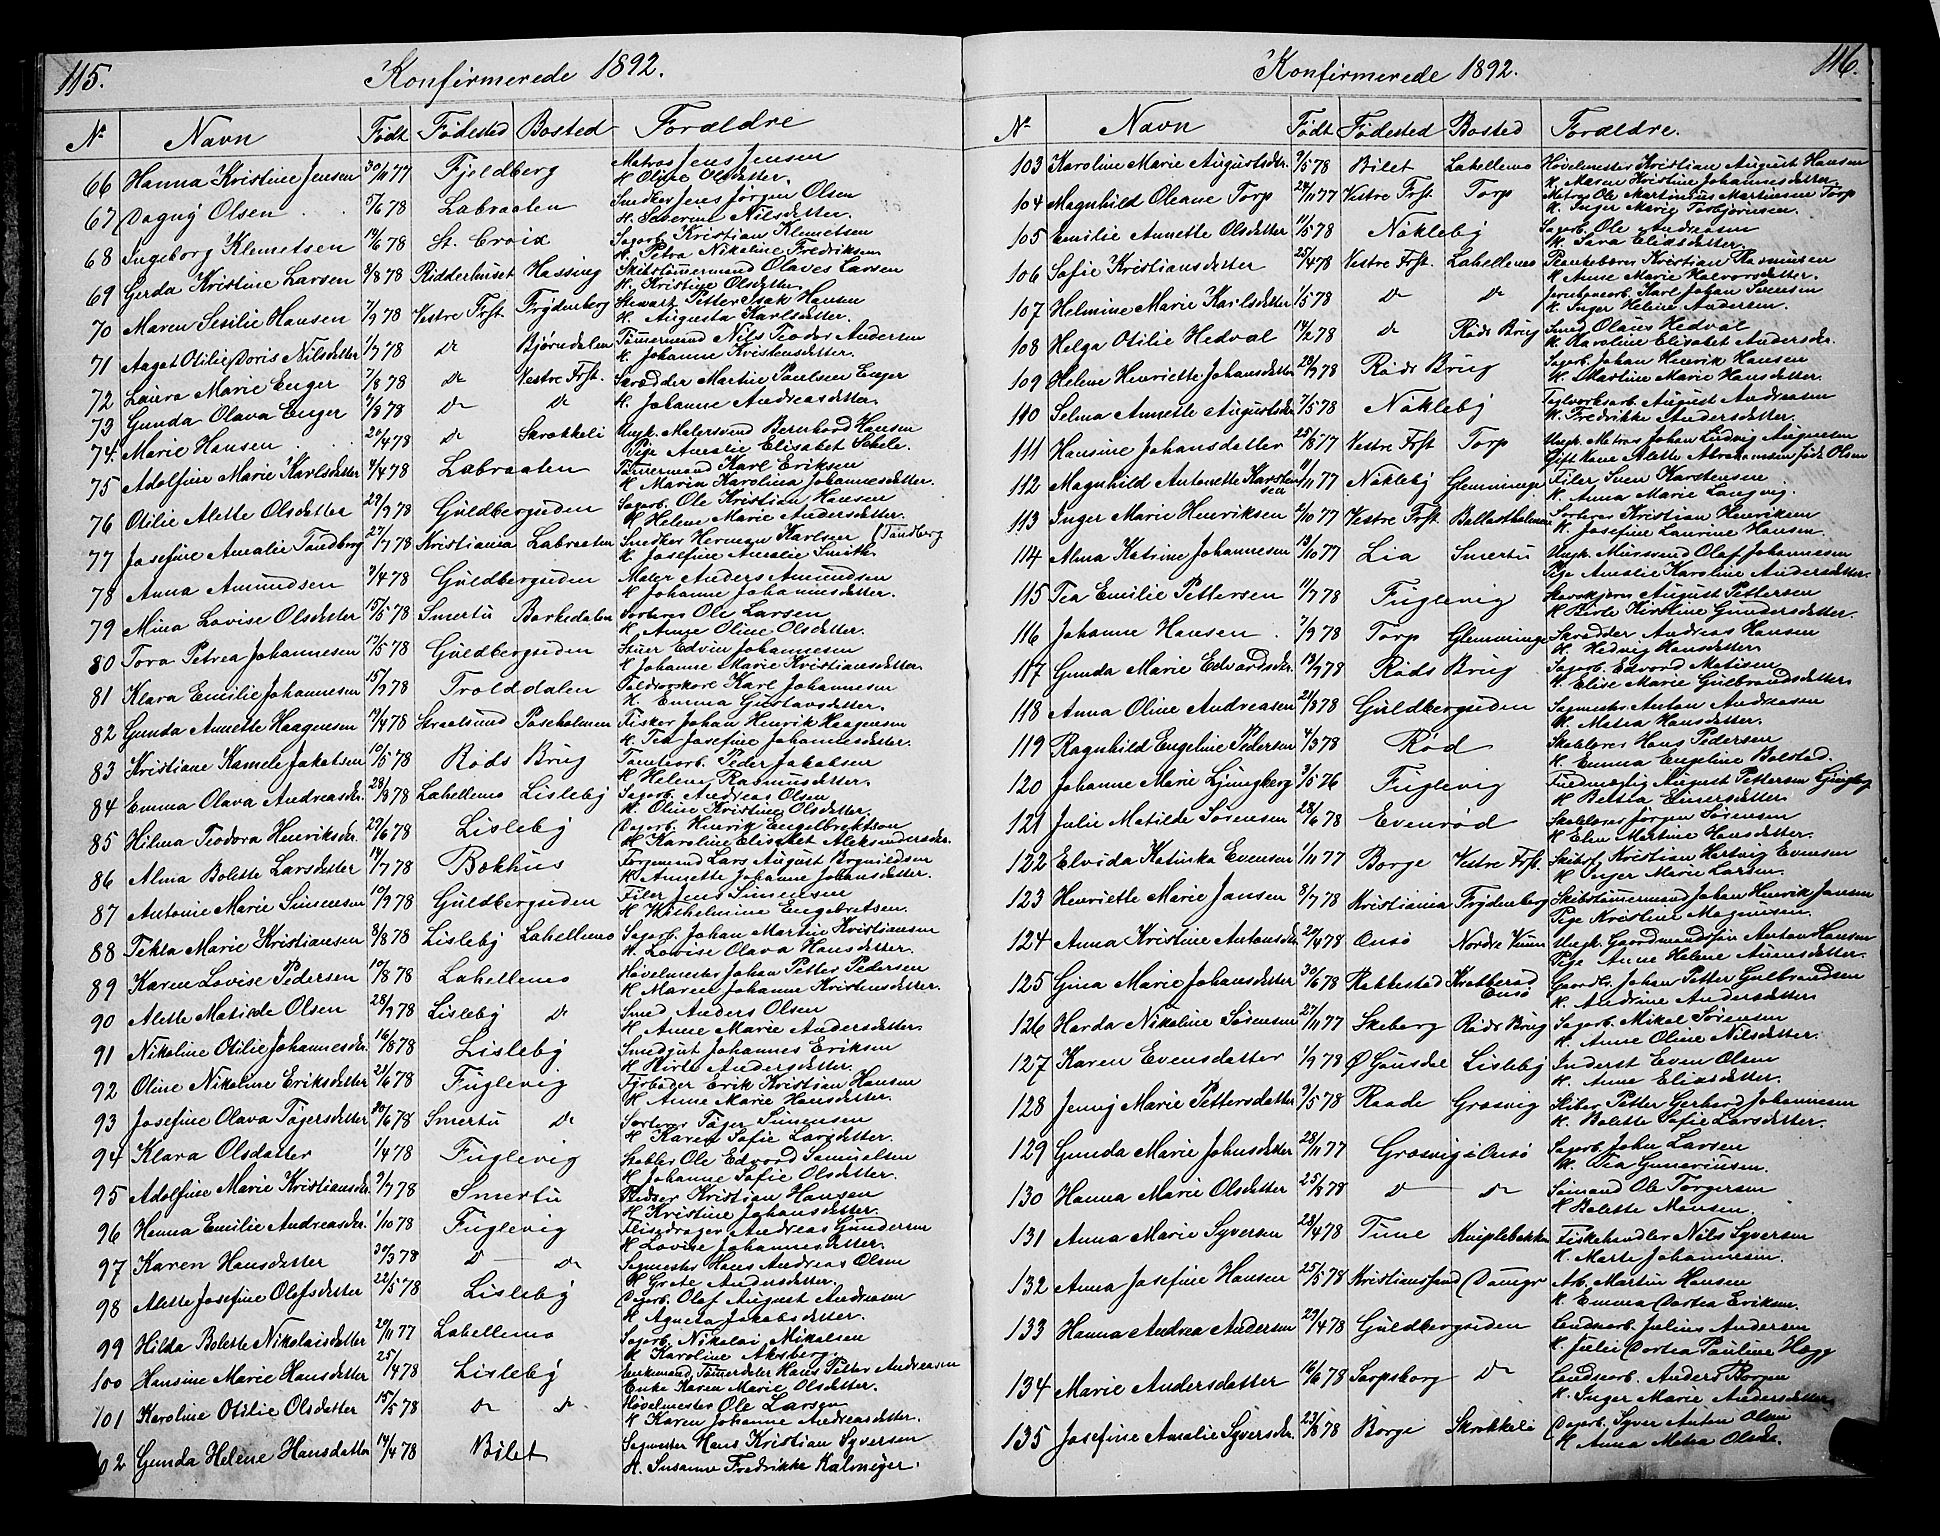 115.
Konfirmerede 1892.
No Navn Født Fødested Bosted Forældre
66 Hanna Kristine Jensen 30/11 77 Fjeldberg Matros Jens Jensen
K Oline Olsdatter.
67 Dagny Olsen 5/6 78 Labraaten Snedker Jens Jørgen Olsen
K. Severine Nilsdatter.
68 Ingeborg Klemetsen 19/6 78 St. Croix Sagarb. Kristian Klemetsen
K. Petra Nikoline Fredriksen
69 Gerda Kristine Larsen 8/8 78 Ridderhuset Hassing Skibstømmermand Olaves Larsen
K. Kristine Olsdatter.
70 Maren Sesilie Hansen 7/9 78 Vestre Frst. Frydenberg Stewart Petter Isak Hansen
K. Augusta Karlsdatter.
71 Aagot Otilie Doris Nilsdatter 1/7 78 do Bjørndalen Tømmermand Nils Teodor Andersen
K. Johanne Kristensdatter.
72 Laura Marie Enger 7/8 78 do Vestre Frst. Skrædder Martin Paulsen Enger
73 Gunda Olava Enger 7/8 78 do do K. Johanne Andreasdatter.
74. Marie Hansen 26/4 78 do Skrakkeli Ungk. Malersvend Bernhard Hansen
Pige Amalie Elisabet Sekele.
75 Adolfine Marie Karlsdatter 7/4 78 Labraaten Tømmermand Karl Eriksen
K. Maria Karolina Johannesdatter.
76 Otilie Alette Olsdatter 22/9 78 Guldbergsiden Sagarb. Ole Kristian Hansen
K Helene Marie Andersdatter.
77 Josefine Amalie Tandberg 27/7 78 Kristiania Labraaten Snedker Herman Karlsen (Tandberg
K Josefine Amalie Smith.
78 Anna Amundsen 7/4 78 Guldbergsiden Maler Anders Amundsen
K Johanne Johannesdatter.
79 Mina Lovise Olsdatter 15/5 78 Smertu Borkedalen Sorterer Ole Larsen
K Anne Oline Olsdatter.
80 Tora Petrea Johannesen 17/5 78 Guldbergsiden Stuer Edvin Johannesen
K Johanne Marie Kristiansdatter.
81 Klara Emilie Johannesen 15/7 78 Trolddalen Karl Johannesen
K. Emma Gustavsdatter.
82 Gunda Annette Haagensen 17/4 78 Skraalsund Paseholmen Fisker Johan Henrik Haagensen
K. Tea Josefine Johannesdatter.
83 Kristiane Kamele Jakobsen 10/5 78 Røds Brug Tomtearb. Peder Jakobsen
K Helene Rasmusdatter.
84 Emma Olava Andreasdr. 28/3 78 Lahellemo Lisleby Sagarb. Andreas Olsen
K. Oline Kristine Olsdatter
85 Hilma Teodora Henriksdr. 23/6 78 Lisleby Dagarb. Henrik Engelbrektsen
K Karoline Elisabet Aleksandersdr.
86 Alma Bolette Larsdatter 14/7 78 Bækhus Færgemand Lars August Brynildsen
K Annette Johanne Johansdatter.
87 Antonie Marie Simensen 10/9 78 Guldbergsiden Filer Jens Simensen
K Wilhelmine Engebretsen.
88 Tekla Marie Kristiansen 8/8 78 Lisleby Lahellemo Sagarb. Johan Martin Kristiansen
K. Lovise Olava Hansdatter.
89 Karen Lovise Pedersen 10/8 78 Lahellemo Høvelmester Johan Petter Pedersen
K Maren Johanne Kristensdatter.
90 Alette Matilde Olsen 28/9 78 Lisleby do Smed Anders Olsen
K Anne Marie Andersdatter.
91 Nikoline Otilie Johannesdr. 16/8 78 Lisleby Smedgut Johannes Eriksen
K Kirte Andersdatter.
92 Oline Nikoline Eriksdatter 21/6 78 Fuglevig Fyrbøder Erik Kristian Hansen
K Anne Marie Hansdatter.
93 Josefine Olava Tøgersdatter 20/6 78 Smertu do Sorterer Tøger Simensen
K Karen Sofie Larsdatter.
94 Klara Olsdatter 1/4 78 Fuglevig Stabler Ole Edvard Samuelsen
K Johanne Sofie Olsdatter.
95 Adolfine Marie Kristiansdr. 9/7 78 Smertu Kristian Hansen
K Kristine Johansdatter.
96 Hanna Emilie Andreasdr. 1/10 78 Fuglevig Flisedrager Andreas Gundersen
K Lovise Johannesdatter.
97 Karen Hansdatter 30/3 78 do do Sagmester Hans Andreas Olsen
K Grete Andersdatter.
98 Alette Josefine Olafsdatter 22/5 78 Lisleby Dagarb. Olaf August Andreasen
K. Agneta Jakobsdatter.
99 Hilda Bolette Nikolaisdatter 20/11 77 Lahellemo Sagarb. Nikolai Mikalsen
K Karoline Aksberg.
100 Hansine Marie Hansdatter 25/4 78 Lisleby Enkemand Tømmerdeler Hans Petter Andreasen
Enke Karen Marie Olsdatter.
101 Karoline Otilie Olsdatter 15/5 78 do do Høvelmester Ole Larsen
K Karen Johanne Andreasdatter.
102 Gunda Helene Hansdatter 17/4 78 Bilet Sagmester Hans Kristian Syversen
K. Susanne Fredrikke Kalvneger.
116.
Konfirmerede 1892.
No Navn Født Fødested Bosted Forældre.
103 Karoline Marie Augustsdr. 7/5 78 Bilet Lahellemo Høvelmester Kristian August Hansen
K. Maren Kristine Johannesdatter.
104 Magnhild Oleane Torp 24/11 77 Vestre Frst. Torp Matros Ole Martinius Martinsen Torp
K. Inger Marie Torbjørnsen.
105 Emilie Annette Olsdatter 11/5 78 Nøkleby Sagarb. Ole Andreasen
K. Sara Eliasdatter.
106 Sofie Kristiansdatter 25/4 78 Vestre Frst. Lahellemo Plankebærer Kristian Rasmussen
K Anne Marie Halvorsdatter.
107 Helmine Marie Karlsdatter 1/5 78 do do Jernbanearb. Karl Johan Svensen
K. Inger Helene Andersen.
108 Helga Otilie Hedval 14/2 78 do Røds Brug Smed Olaus Hedval
K Karoline Elisabet Andersdr.
109 Helene Henriette Johansdatter 28/9 78 Røds Brug Sagarb. Johan Henrik Hansen
K. Martine Marie Hansdatter.
110 Selma Annette Augustsdr. 7/5 78 Nøkleby Teglverksarb. August Andreasen
K. Fredrikke Andersdatter.
111 Hansine Johansdatter 25/8 77 Vestre Frst. Torp Ungk. Matros Johan Ludvig Augnesen
Gift Kone Alette Abrahamsen født Olsen
112 Magnhild Antonette Karsten
sen 9/11 77 Nøkleby Glemminge Filer Sven Karstensen
K. Anna Marie Langvig.
113 Inger Marie Henriksen 2/10 77 Vestre Frst. Ballastholmen Sorterer Kristian Henriksen
K. Josefine Laurine Hansen.
114 Alma Katrine Johannesen 13/10 77 Lia Smertu Ungk. Mursvend Olaf Johannesen
Pige Amalie Karoline Andersdatter.
115 Tea Emilie Pettersen 11/7 78 Fuglevig August Pettersen
K Kirte Kirstine Gundersdatter.
116 Johanne Hansen. 7/9 78 Torp Glemminge Skrædder Andreas Hansen
K. Hedvig Hansdatter.
117 Gunda Marie Edvardsdr. 13/9 78 Røds Brug Sagarb. Edvard Matisen
K. Elise Marie Gulbrandsdatter.
118 Anna Oline Andreasen 21/8 78 Guldbergsiden Sagmester Anton Andreasen
K. Matea Hansdatter.
119 Ragnhild Engeline Pedersen 4/3 78 Rød Skolelærer Hans Pedersen
K. Emma Engeline Bolstad.
120 Johanne Marie Ljungberg 3/5 76 Fuglevig August Pettersen Ljungberg
K Beata Einersdatter.
121 Julie Matilde Sørensen 28/6 78 Evenrød Skolelærer Jørgen Sørensen
K. Elen Martine Hansdatter.
122 Elvida Katinka Evensen 1/11 77 Borge Vestre Frst. Skibsf. Kristian Hartvig Evensen
K. Inger Marie Larsen.
123 Henriette Marie Jansen 8/7 78 Kristiania Frydenberg Skibstømmermand Johan Henrik Jansen
Pige Kristine Magnussen.
124 Anna Kristine Antonsdr. 27/4 78 Onsø Nordre Ungk. Gaardmandssøn Anton Hansen
Pige Anne Helene Aunesdatter.
125 Gina Marie Johansdatter 30/6 78 Rakkestad Krabberød
Onsø Gaardbr. Johan Petter Gulbrandsen
K. Andrine Andersdatter
126 Harda Nikoline Sørensen 27/11 77 Skeberg Røds Brug Sagarb. Mikal Sørensen
K. Anne Oline Nilsdatter.
127 Karen Evensdatter 1/9 78 Ø Gausdal Lisleby Inderst Even Olsen
K. Anne Eliasdatter.
128 Jenny Marie Pettersdatter 9/5 78 Raade Græsvig Skibsr. Petter Gerhard Johannesen
K. Bolette Sofie Larsdatter.
129 Gunda Marie Johnsdatter 28/11 77 Græsvig i Onsø Sagarb. John Larsen
K. Tea Gunerinsen.
130 Hanna Marie Olsdatter 25/8 78 do do Sømand Ole Torgersen
K Bolette Monsen.
131 Anna Marie Syversen 28/4 78 Tune Kniplebakken Fiskehandler Nils Syversen
K. Marte Johannesen.
132 Anna Josefine Hansen 25/5 78 Kristianssand Damyr Arb. Martin Hansen
K. Emma Dortea Eriksen.
133 Hanna Andrea Andersen 23/4 78 Guldbergsiden Landsarb. Julius Andersen
K. Julie Dortea Pauline Hagg
134 Marie Andersdatter 16/6 78 Sarpsborg do Landsarb. Anders Borgen
K. Inger Marie Andersdatter
135 Josefine Amalie Syversdr. 23/8 78 Borge Skrakkeli Dagarb. Syver Anton Olsen
K Anna Matea Olsdr.